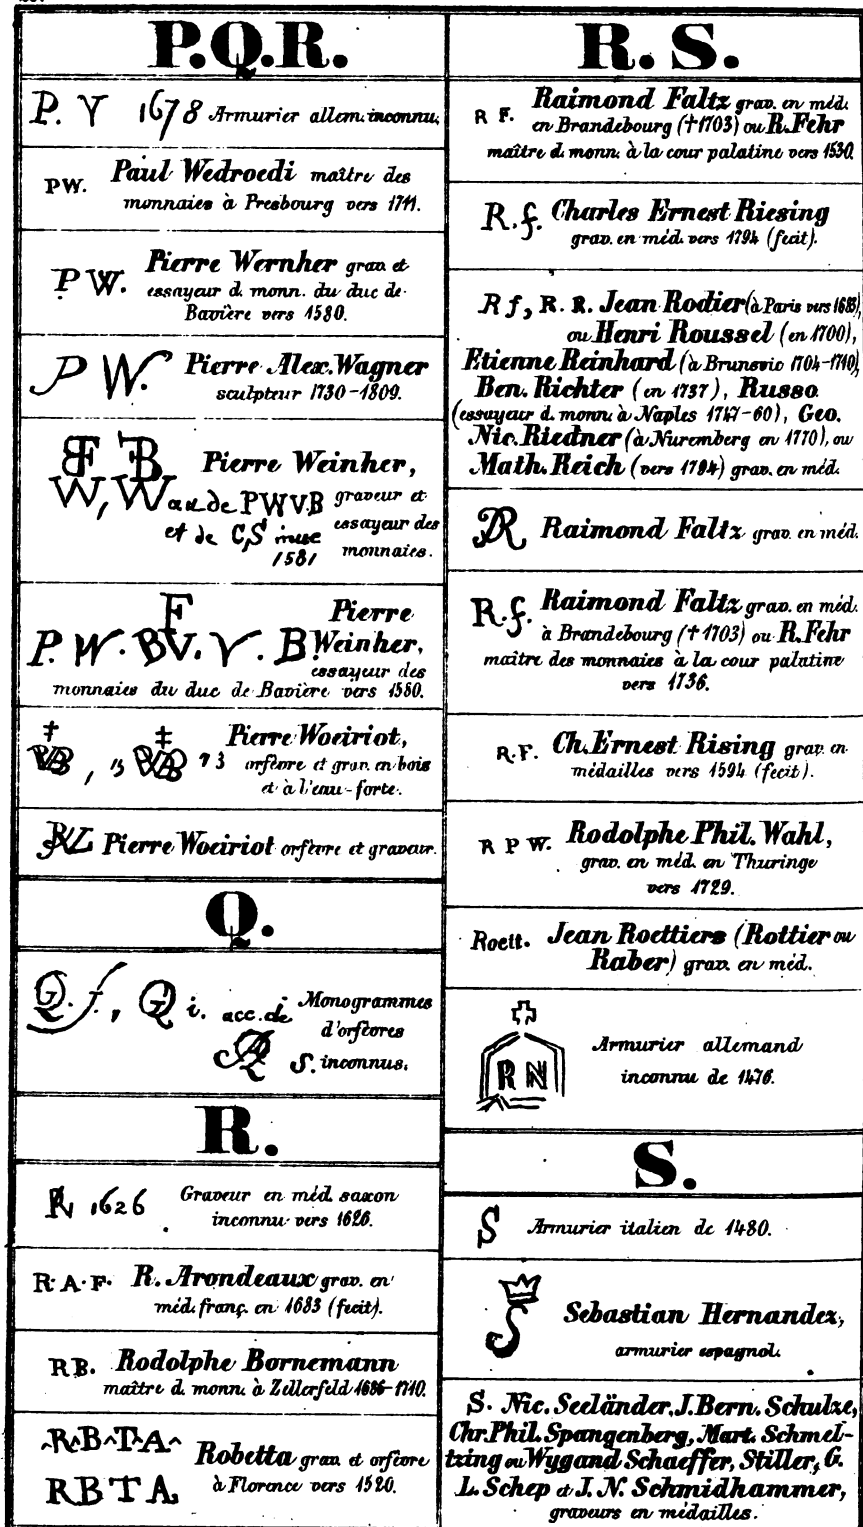 P.Q.R.
P. Y 1678 Armurier allem. inconnu.
PW. Paul Wedroedi maître des
monnaies à Presbourg vers 1711.
P W. Pierre Wernher grav. et
essayeur d. monn. du duc de
Bavière vers 1580.
P W. Pierre Alex. Wagner
sculpteur 1730-1809.
Pierre Weinher,
W, W au de PWVB graveur et
et de C,S inse essayeur des
1581 monnaies.
F Pierre
P. W. BV. V. B Weinher,
essayeur des
monnaies du duc de Bavière vers 1580.
Pierre Woeiriot,
, 15 73 orfèvre et grav. en bois
et à l'eau-forte.
Pierre Woeiriot orfèvre et graveur.
Q.
Q. f., Q i. acc. de Monogrammes
d'orfèvres
S. inconnus.
R.
1626 Graveur en méd. saxon
inconnu vers 1626.
R. A. F. R. Arondeaux grav. en
méd. franç. en 1683 (fecit).
RB. Rodolphe Bornemann
maître d. monn. à Zellerfeld 1686-1710.
R B T A Robetta grav. et orfèvre
RBTA à Florence vers 1520.
R. S.
R F. Raimond Faltz grav. en méd.
en Brandebourg (†1703) ou R. Fehr
maître d. monn. à la cour palatine vers 1530.
R. f. Charles Ernest Riesing
grav. en méd. vers 1794 (fecit).
R f, R. R. Jean Rodier (à Paris vers 1688),
ou Henri Roussel (en 1700),
Etienne Reinhard (à Brunsvic 1704-1710),
Ben. Richter (en 1737), Russo
(essayeur d. monn. à Naples 1747-60), Geo.
Nic. Riedner (à Nuremberg en 1770), ou
Math. Reich (vers 1794) grav. en méd.
Raimond Faltz grav. en méd.
R. f. Raimond Faltz grav. en méd.
à Brandebourg (†1703) ou R. Fehr
maître des monnaies à la cour palatine
vers 1736.
R. F. Ch. Ernest Rising grav. en
médailles vers 1594 (fecit).
R P W. Rodolphe Phil. Wahl,
grav. en méd. en Thuringe
vers 1729.
Roett. Jean Roettiers (Rottier ou
Raber) grav. en méd.
R N Armurier allemand
inconnu de 1476.
S.
S Armurier italien de 1480.
S Sebastian Hernandez,
armurier espagnol.
S. Nic. Seeländer, J. Bern. Schulze,
Chr. Phil. Spangenberg, Mart. Schmel-
tzing ou Wygand Schaeffer, Stiller, G.
L. Schep et J. N. Schmidhammer,
graveurs en médailles.